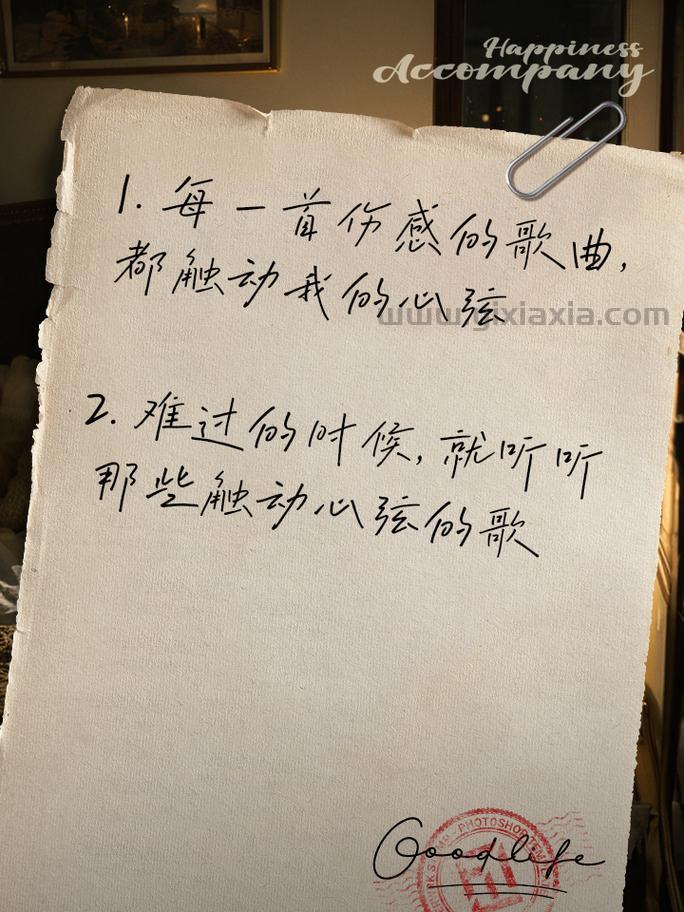 Happiness
Accompany
1. 每一首伤感的歌曲,
都触动我的心弦
www.yixiaxia.com
2. 难过的时候, 就听听
那些触动心弦的歌
PHOTOSHOP
Goodlife